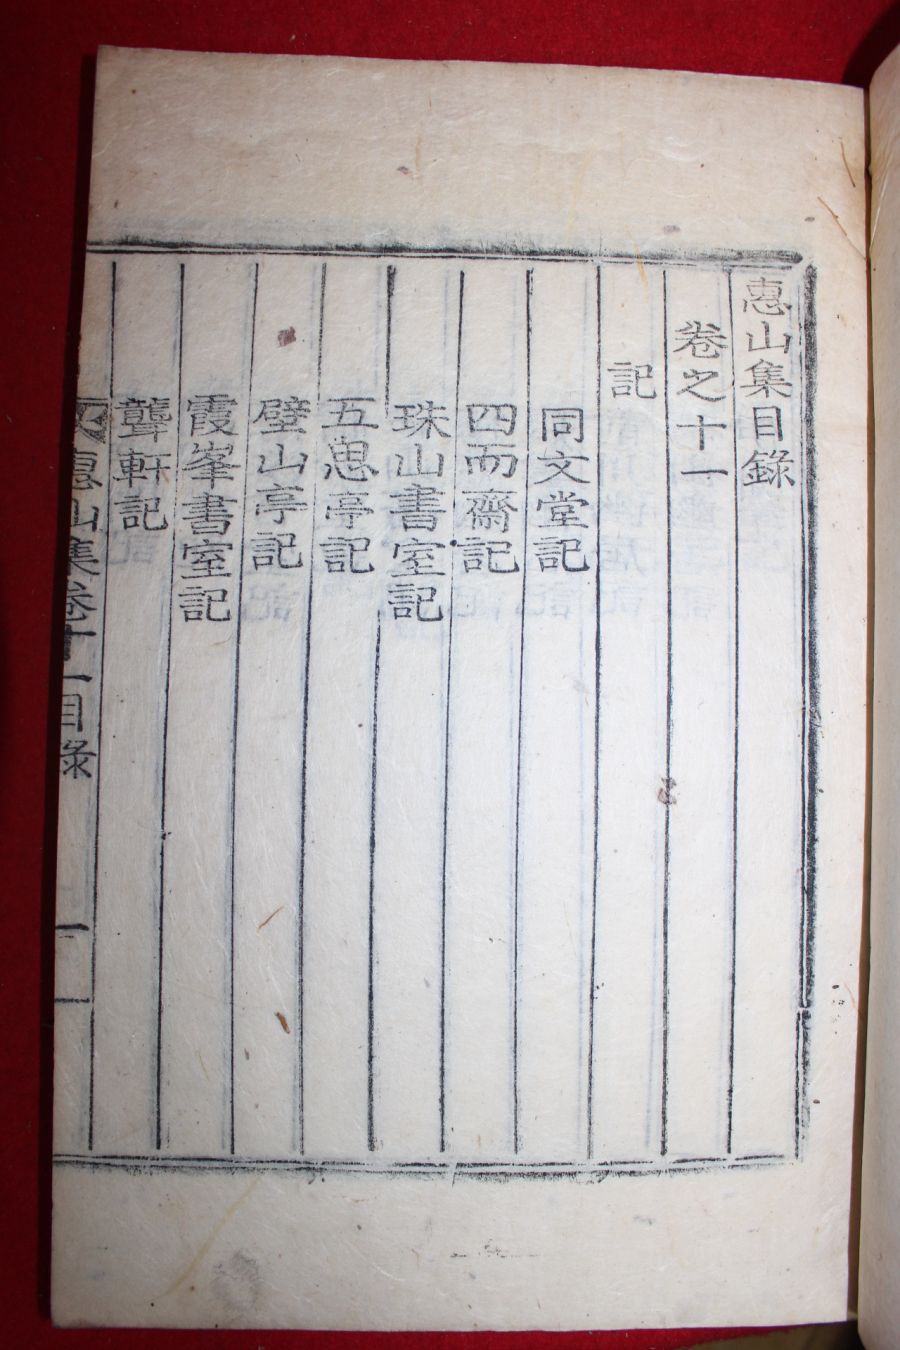 惠山集目錄
卷之十一
記
同文堂記
四而齋記
珠山書室記
五思亭記
壁山亭記
霞峯書室記
聾軒記
惠山集卷十一目錄
一